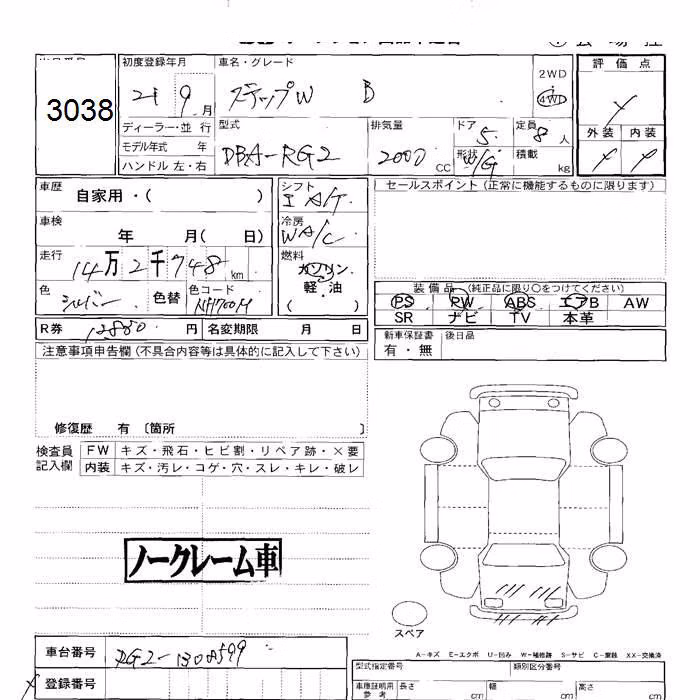 3038
初度登録年月 車名・グレード 2WD 評価点
21 9月 ステップW B 4WD
ディーラー・並行 型式 排気量 ドア 定員 外装 内装
モデル年式 年 DBA-RG2 2000 CC 5 8人
ハンドル 左・右 形状 W/G 積載 kg
車歴 自家用・( ) シフト I A/T セールスポイント(正常に機能するものに限ります)
車検 年 月( 日) 冷房 W A/C
走行 14万2千748km 燃料 ガソリン
軽・油
( )
色 シルバー 色替 色コード NH700M
装備品(純正品に限り○をつけてください)
PS PW ABS エアB AW
SR ナビ TV 本革
R券 12880円 名変期限 月 日
新車保証書 後日品
有・無
注意事項申告欄(不具合内容等は具体的に記入して下さい)
修復歴 有 〔箇所 〕
検査員 FW キズ・飛石・ヒビ割・リペア跡・×要
記入欄 内装 キズ・汚レ・コゲ・穴・スレ・キレ・破レ
ノークレーム車
スペア
A-キズ E-エクボ U-凹み W-補修跡 S-サビ C-腐蝕 XX-交換済
車台番号 RG2-1308599
登録番号
型式指定番号 類別区分番号
車庫証明用 長さ cm 幅 cm 高さ cm
参考